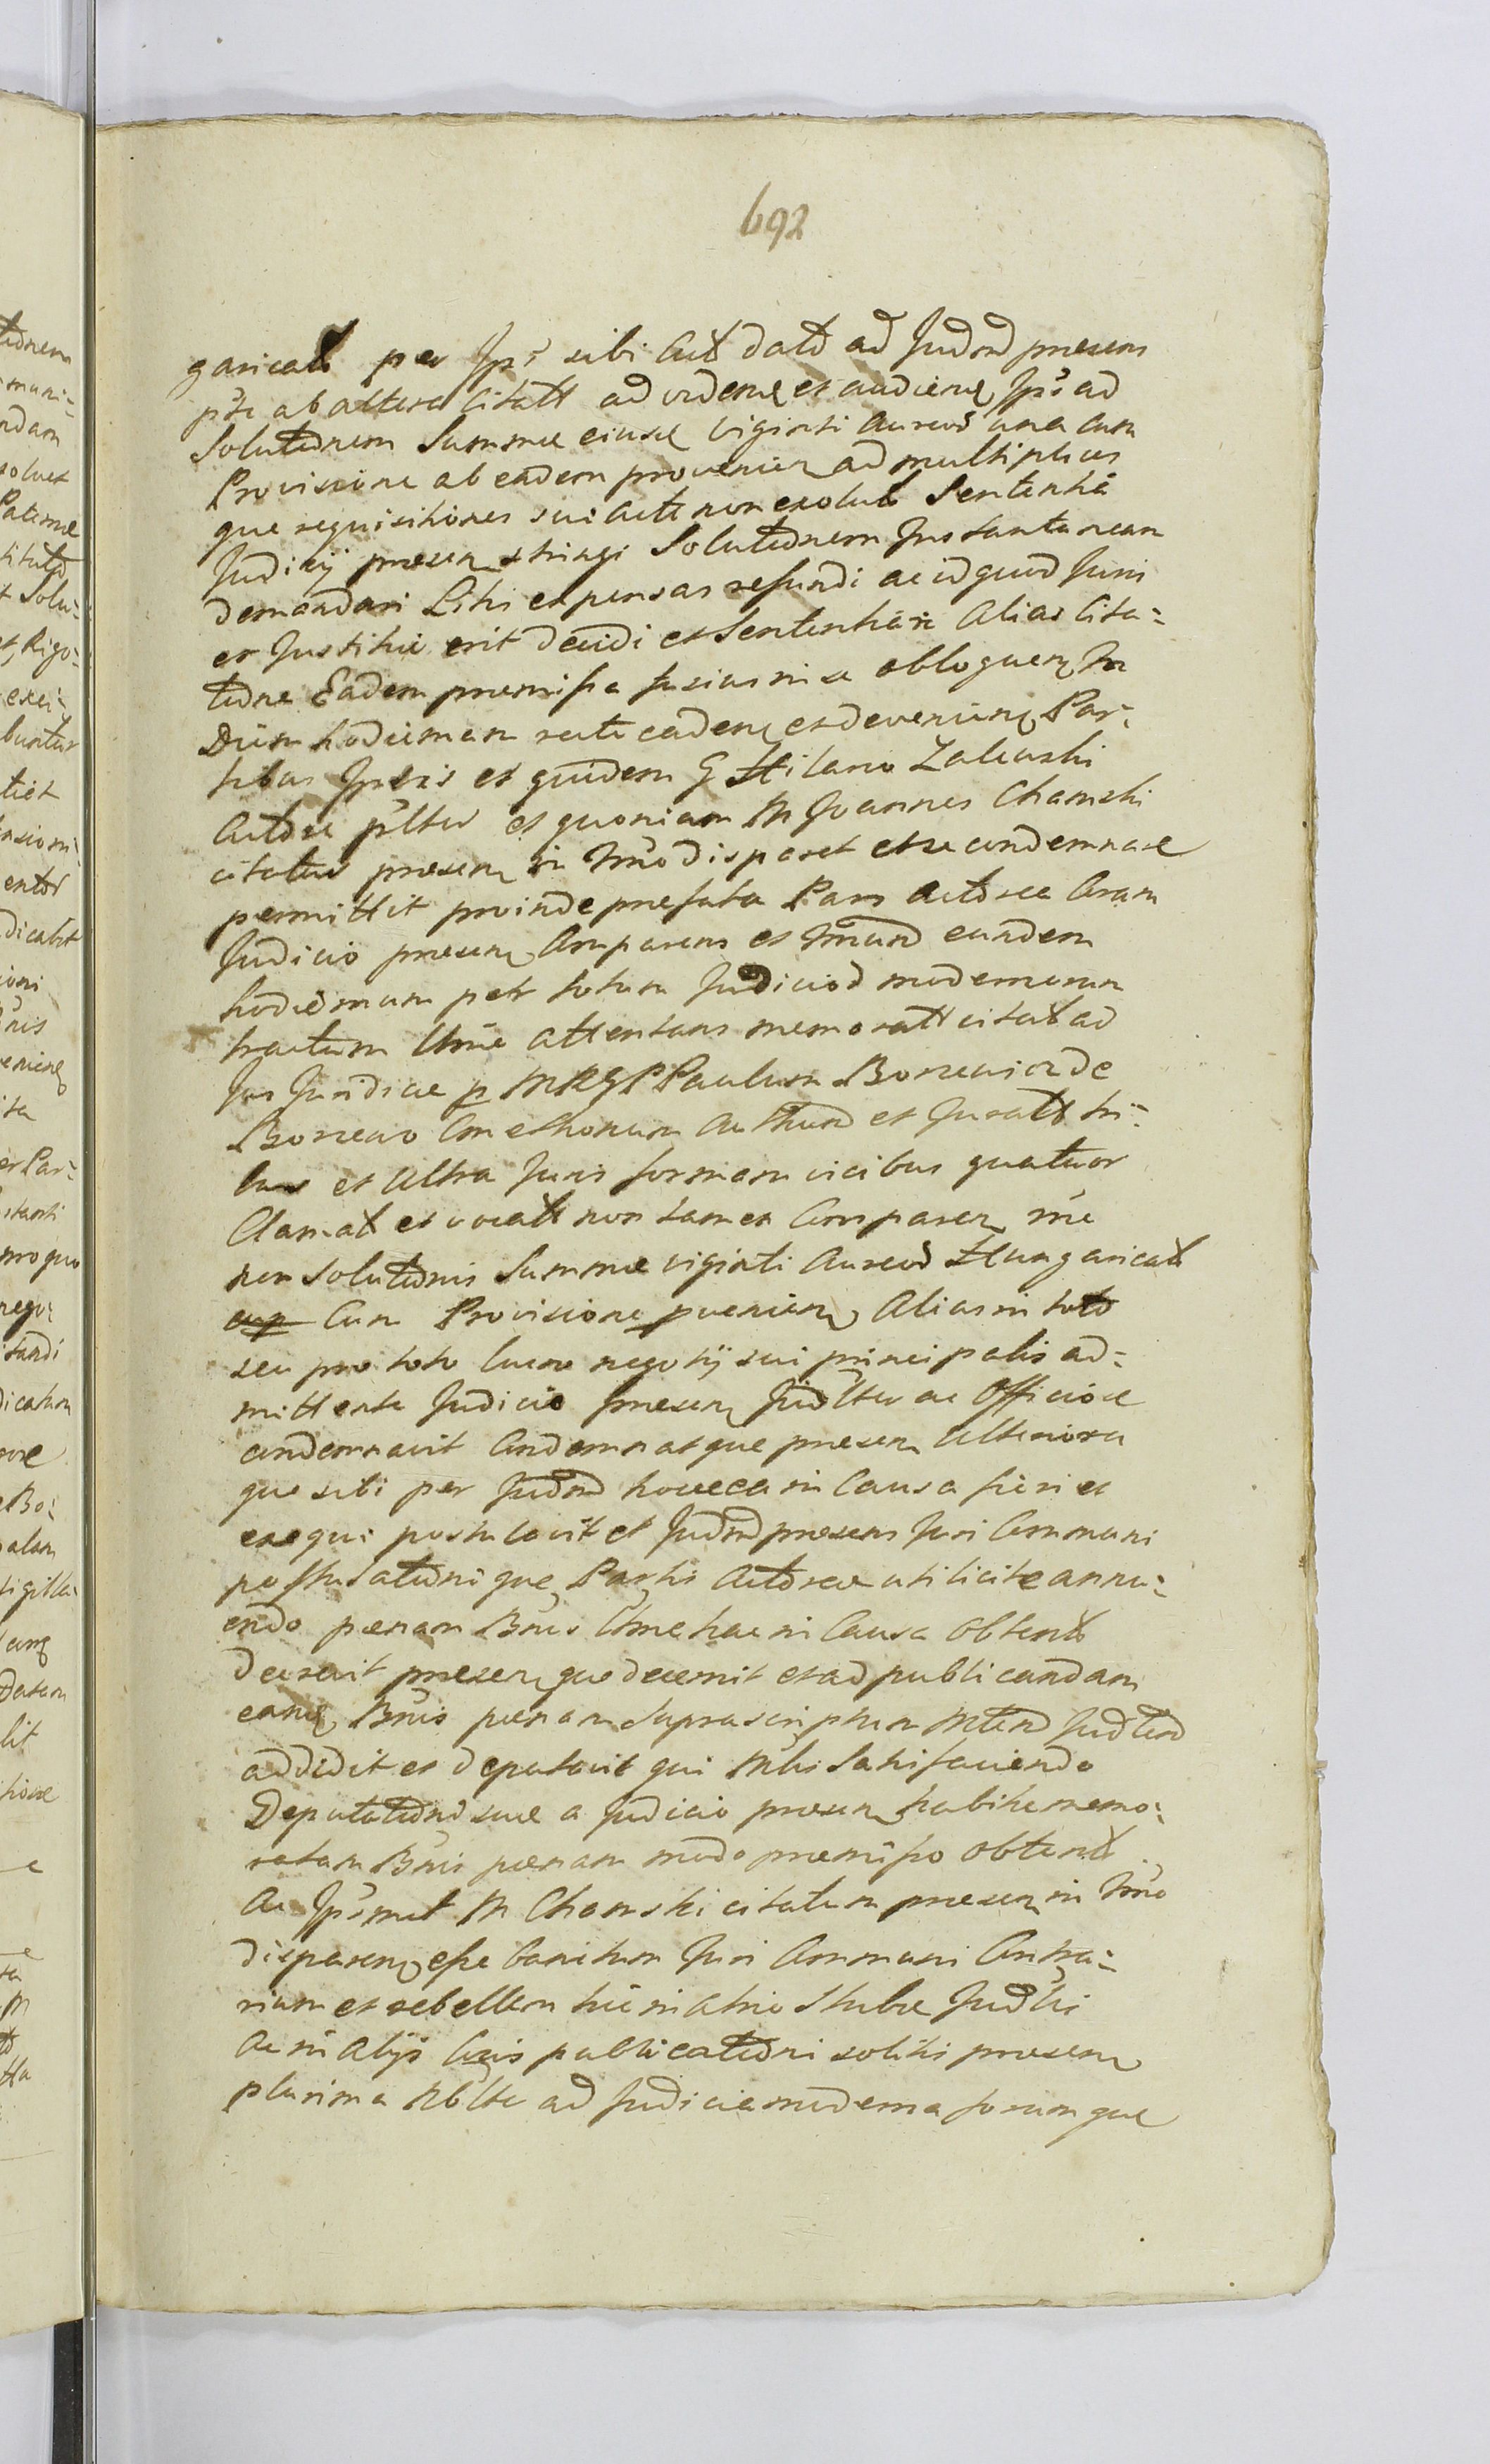 692
garicalt per Ips sibi Actt datt ad Judm praesens
pte ab altera Citatt ad videndq et audiendq Ips ad
Solutionem Summae eiusd viginti Aureor una cum
Provisione ab eadem provenien ad multiplices
que requisitiones sui Actt non exolutt Sententia
Judicij praesen stringi Solutionem Instantaneam
demandari Litis expensas refundi ac id quid Juris
et Justitiae erit decidi et Sententiari Alias Cita=
tione Eadem praemissa fusius in se obloquen In
Diem hodiernam recte caden et devenien Par=
tibus Ipsis et quidem G Hilario Zaleuski
Actore pltr et quoniam M Joannes Chamski
citatus praesen in Tmo disparet et se condemnare
permittit proinde praefata Pars Actorea Coram
Judicio praesen Comparens et Tmum eundem
hodiernum per totum Judicior modernorum
tractum Ulme attentans memoratt citatt ad
Jus Juridice p MRGP Paulum Borzewic de
Borzewo Cmethonum Authum et Juratt tri=
bus et Ultra Juris formam vicibus quatuor
Clamatt et vocatt non tamen Comparen rne
non Solutionis Summae viginti Aureor Hungaricalt
Cum Provisione pvenien Alias in toto
seu pro toto lucro negotij sui principalis ad=
mittente Judicio praesen Judltr ac Officiose
condemnavit Condemnatque praesen Ulteriora
que sibi per Judm hocce ea in Causa fieri et
exequi postulavit et Judm praesens Juri Communi
postulationi que Partis Actoreae uti licitae annu=
endo paenam Bnis Ulme hac in Causa obtentt
decrevit praesen que decernit et ad publicandam
eandq Bnis paenam suprascriptum Mtum Judlem
addidit et deputavit qui Mtus Satisfaciendo
Deputationi suae a Judicio praesen habitae memo=
ratam Bnis paenam modo praemisso obtentt
Ac Ipsmet M Chamski citatum praesen in Tmo
disparen esse banitum Juri Communi Contra=
rium et rebellem hic in atrio Stubae Judlis
Ac in Alijs locis publicationi solitis praesen
plurima Nblte ad Judicia moderna forumque